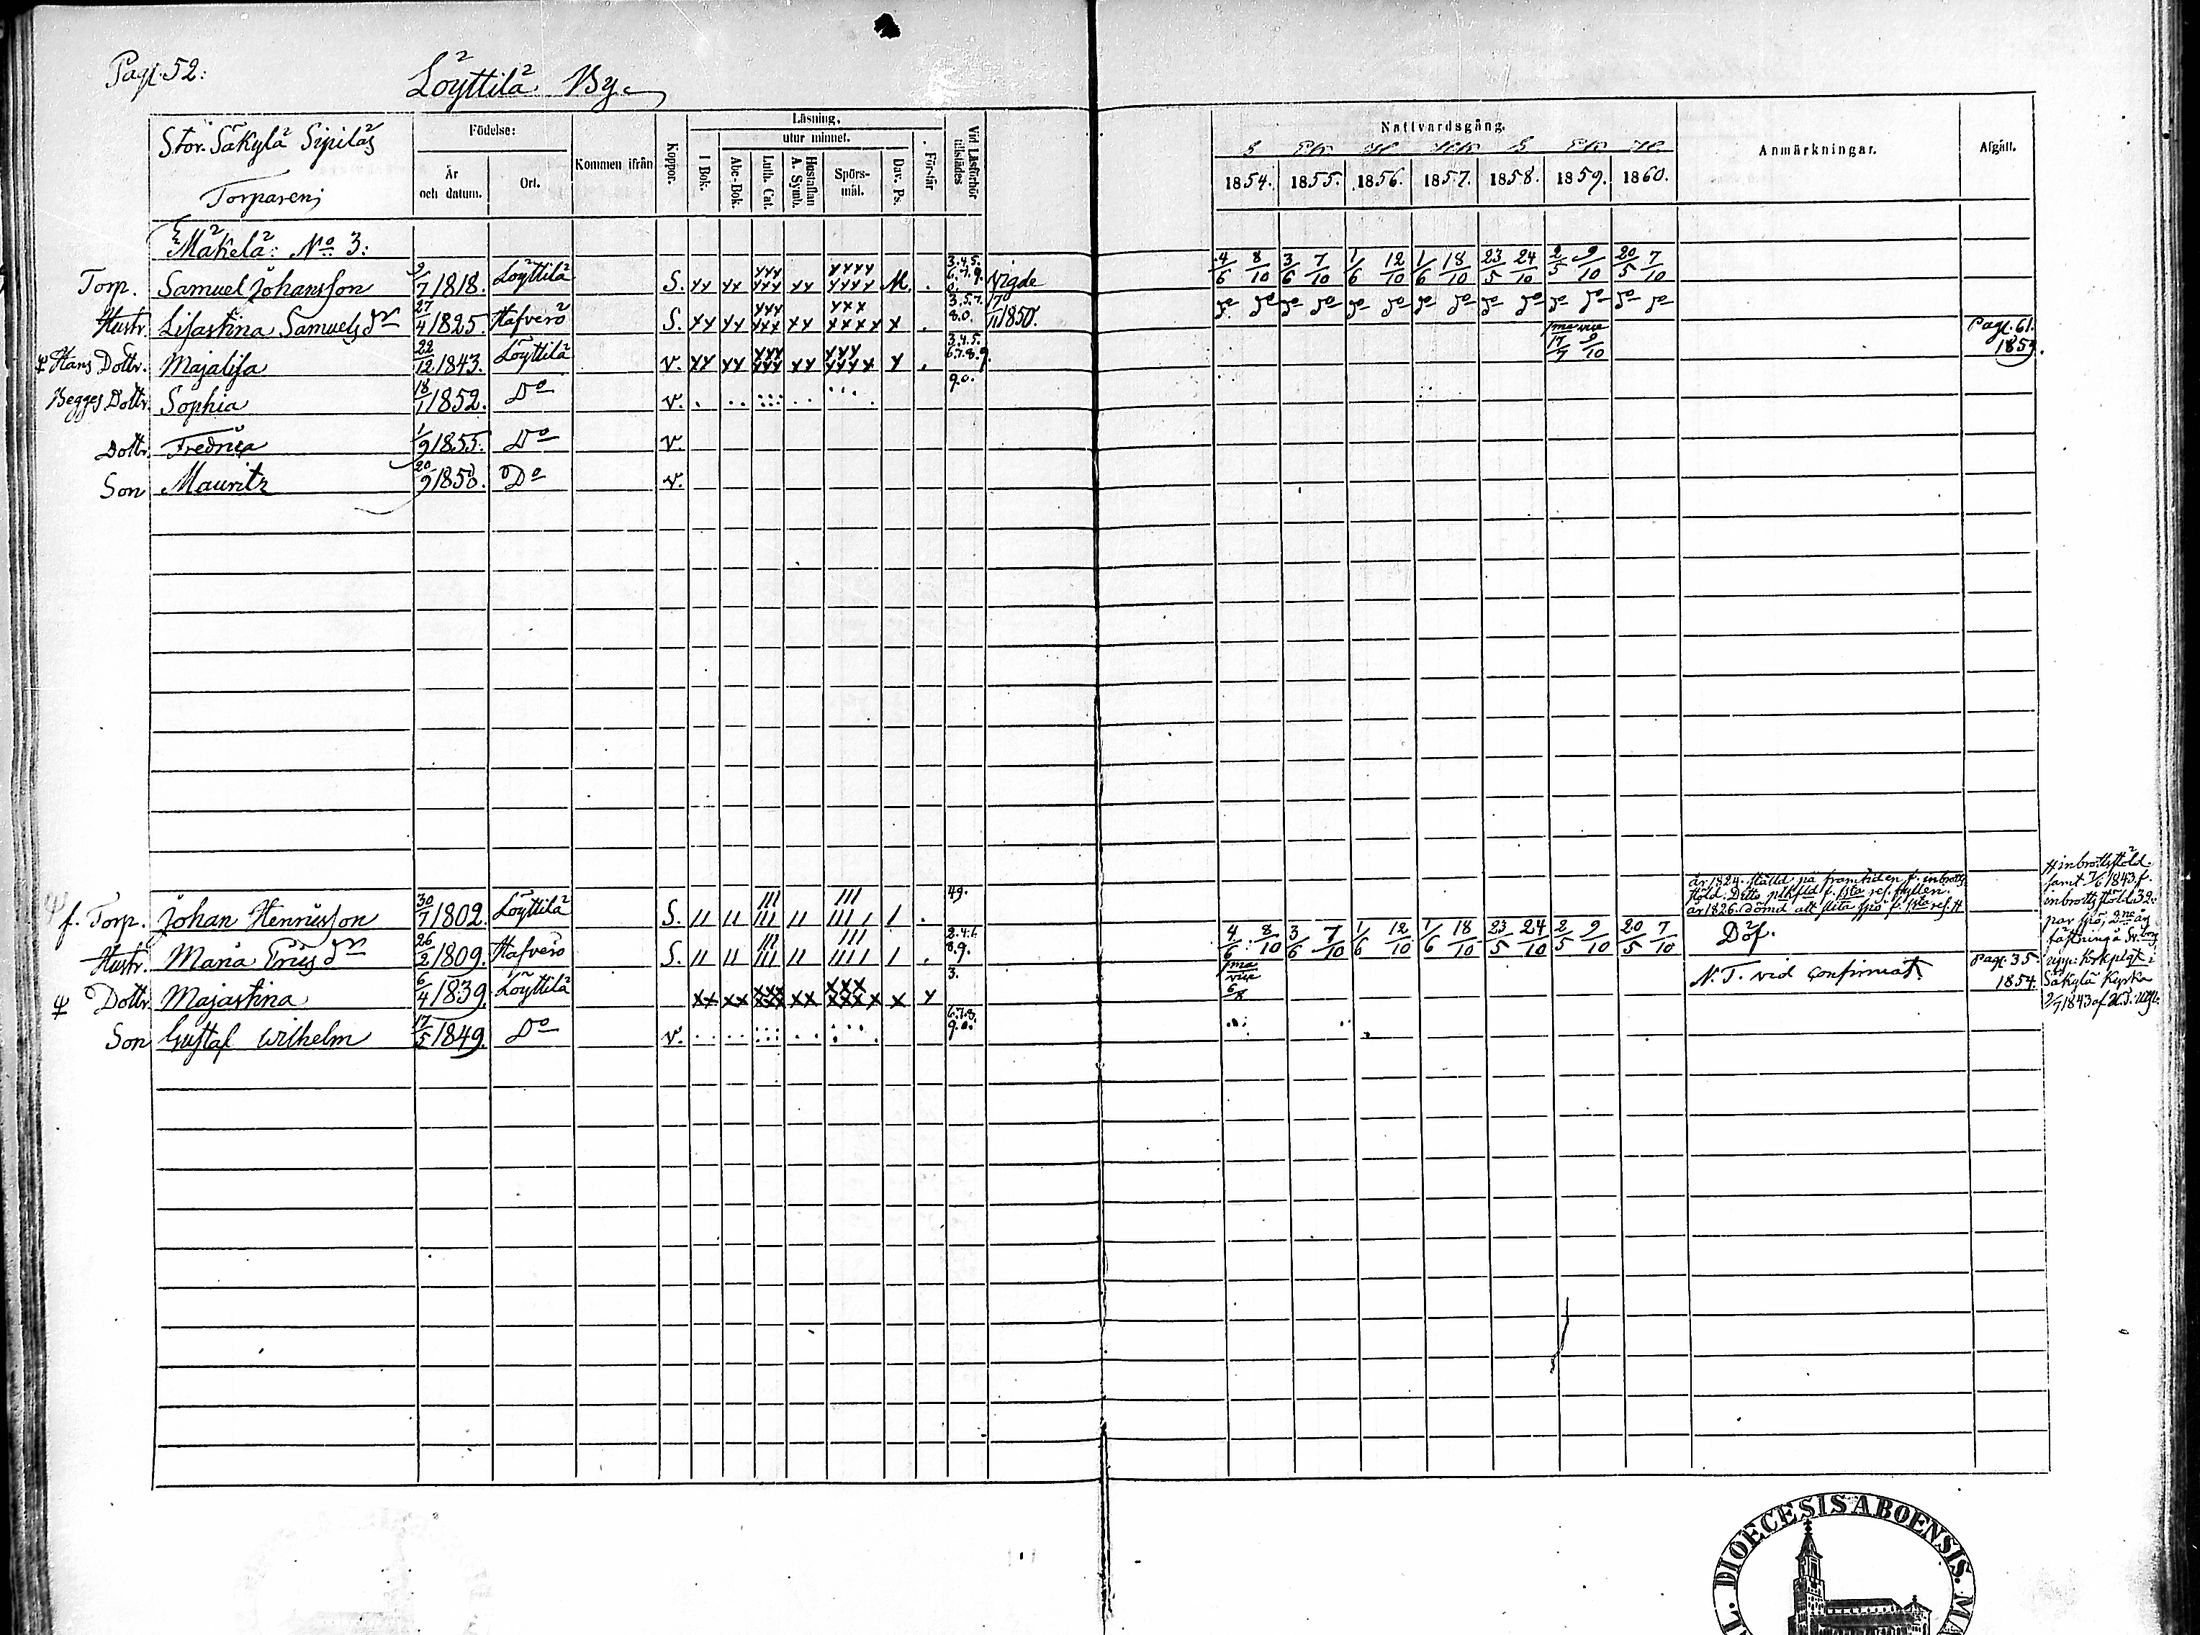 Pag. 52:
Löyttilä By
Stor. Säkylä Sipiläs
Torparen;
Födelse:
År och datum.
Ort.
Kommen ifrån
Koppor.
Läsning,
utur minnet.
I Bok.
Abc-Bok.
Luth. Cat.
Hustaflan A. Symb.
Spörsmål.
Dav. Ps.
Förstår
Vid Läsförhör tillstädes
Nattvardsgång.
1854. 1855. 1856. 1857. 1858. 1859. 1860.
Anmärkningar.
Afgått.
Mäkelä: No 3:
Torp. Samuel Johansson 9/7 1818. Löyttilä S. xx xx xxx xxx xx xxxx xxxx M. . 3.4.5. 6.7.9. 0. Vigde 4/6 8/10 3/6 7/10 1/6 12/10 1/6 18/10 23/5 24/10 2/5 9/10 20/5 7/10
Hustr. Lisastina Samuels dr 27/4 1825. Hafverö S. xx xx xxx xxx xx xxx xxxx x . 3.5.7. 8.0. 17/11 1850. do do do do do do do do do do do do do do
Hans Dottr. Majalisa 22/12 1843. Löyttilä v. xx xx xxx xxx xx xxx xxxx x . 3.4.5. 6.7.8.9. 17/7 9/10 Pag. 61. 1859.
Begges Dottr. Sophia 18/1 1852. Do v. 9.0.
Dottr. Fredrica 1/9 1855. Do v.
Son Mauritz 20/9 1858. Do v.
f. Torp. Johan Henricsson 30/7 1802. Löyttilä S. 49.
år 1824. ställd på framtiden f. inbrotts
stöld. Ditto
år 1826. dömd att slita spö f.
Hustr. Maria Eriks dr 26/2 1809. Hafverö S. 2.4.6. 8.9. 4/6 8/10 3/6 7/10 1/6 12/10 1/6 18/10 23/5 24/10 2/5 9/10 20/5 7/10 Döf.
Dottr. Majastina 6/4 1839. Löyttilä xx xx xxx xxx xx xxx xxxx x x 3. N. T. vid confirmat. Pag. 35. 1854.
Son Gustaf Wilhelm 17/5 1849. Do v. 6.7.8. 9.0.
inbrottsstöld
samt 7/6 1843 f.
inbrottsstöld 32
par spö, 2ne års
fästning å Sv.borg,
upp. kyrkpligt i
Säkylä Kyrka
DIOECESIS ABOENSIS. MA